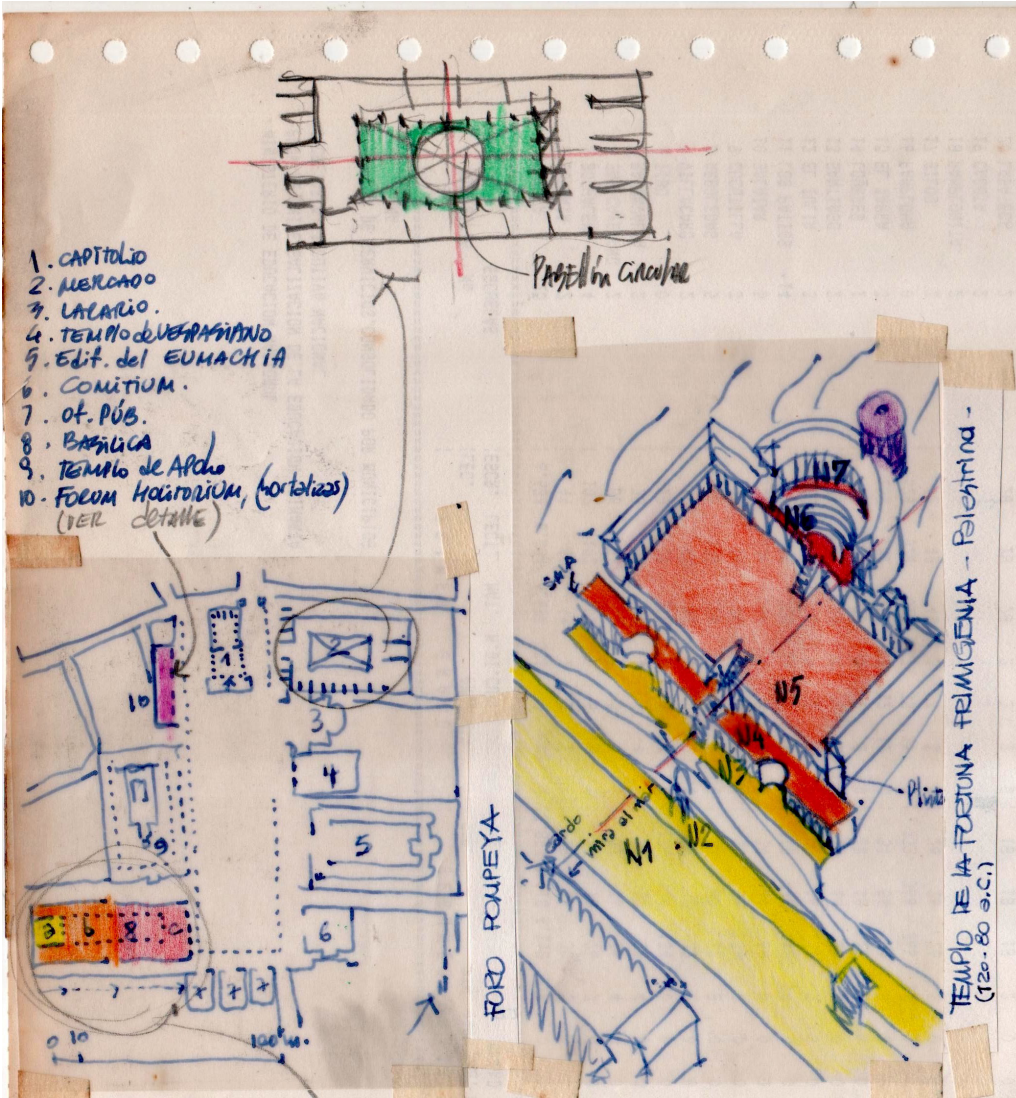 PABEllón CirculAR
1. CAPITOLIO
2. MERCADO
3. LARARIO.
4. TEMPLO de VESPASIANO
5. Edif. del EUMACHIA
6. COMITIUM.
7. Of. PÚB.
8. BASÍLICA
9. TEMPLO de APOLO
10. FORUM HOLITORIUM, (hortalizas)
(VER detalle)
1
10
3
4
5
9
6
a b 8 c
7 7 7
0 10 100 m.
FORO POMPEYA
N7
N6
SALA
N5
N4
N3
N2
N1
cardo
mira al mar
Plinto
TEMPLO DE LA FORTUNA PRIMIGENIA - Palestrina -
(120-80 a.C.)